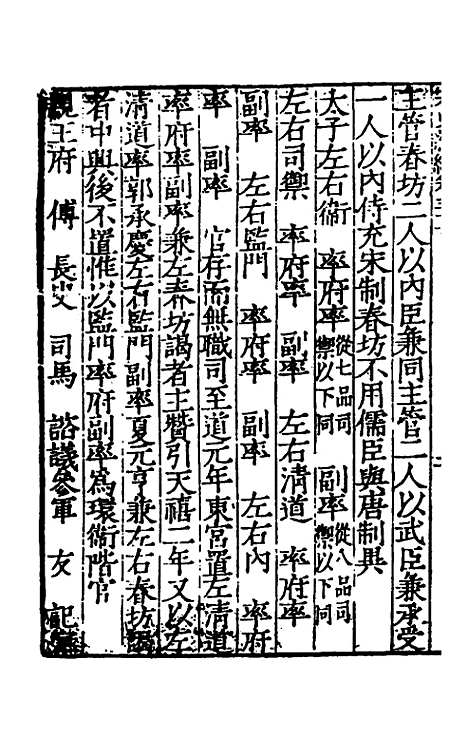 主管春坊二人以內臣兼同主管二人以武臣兼承受
一人以內侍充宋制春坊不用儒臣與唐制異
太子左右衛　率府率從七品司禦以下同　副率從八品司禦以下同
左右司禦　率府率　副率　左右清道　率府率
副率　左右監門　率府率　副率　左右內　率府
率　副率　官存而無職司至道元年東宮置左清道
率府率副率兼左春坊謁者主贊引天禧二年又以左
清道率郭承慶左右監門副率夏元亨兼左右春坊謁
者中興後不置惟以監門率府副率為環衛階官
親王府　傅　長史　司馬　諮議參軍　友　記室